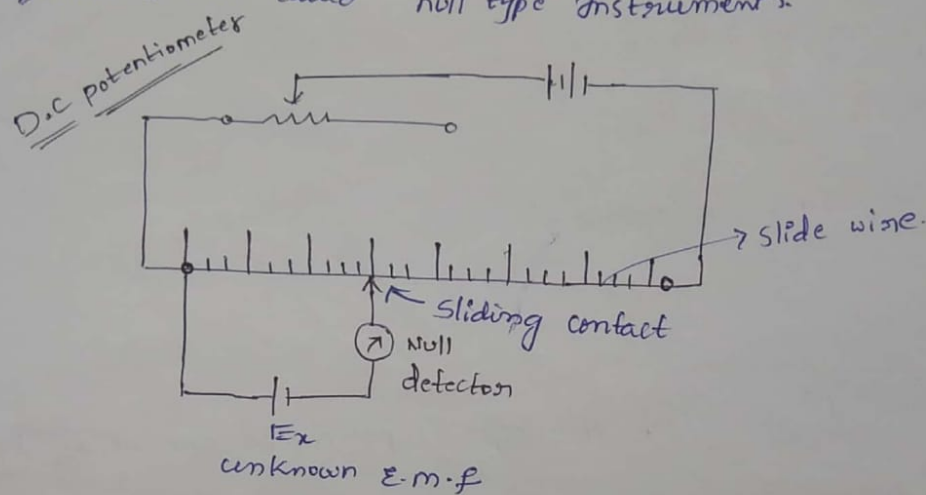 null type instrument.
D.C potentiometer
slide wire.
sliding contact
Null
detector
Ex
unknown E.m.f